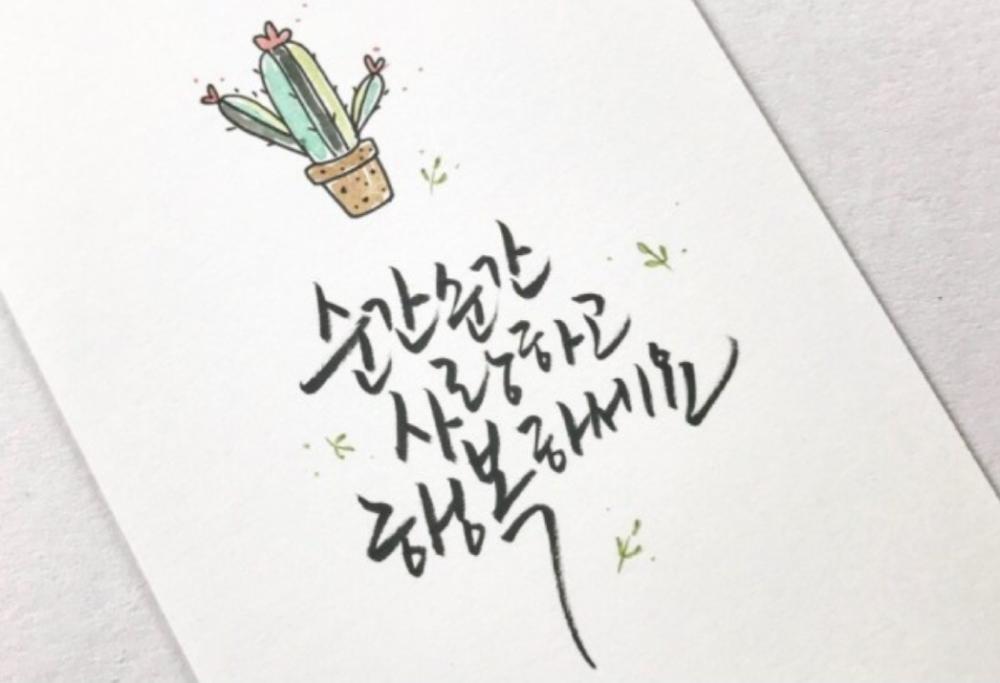 순간순간
사랑하고
행복하세요